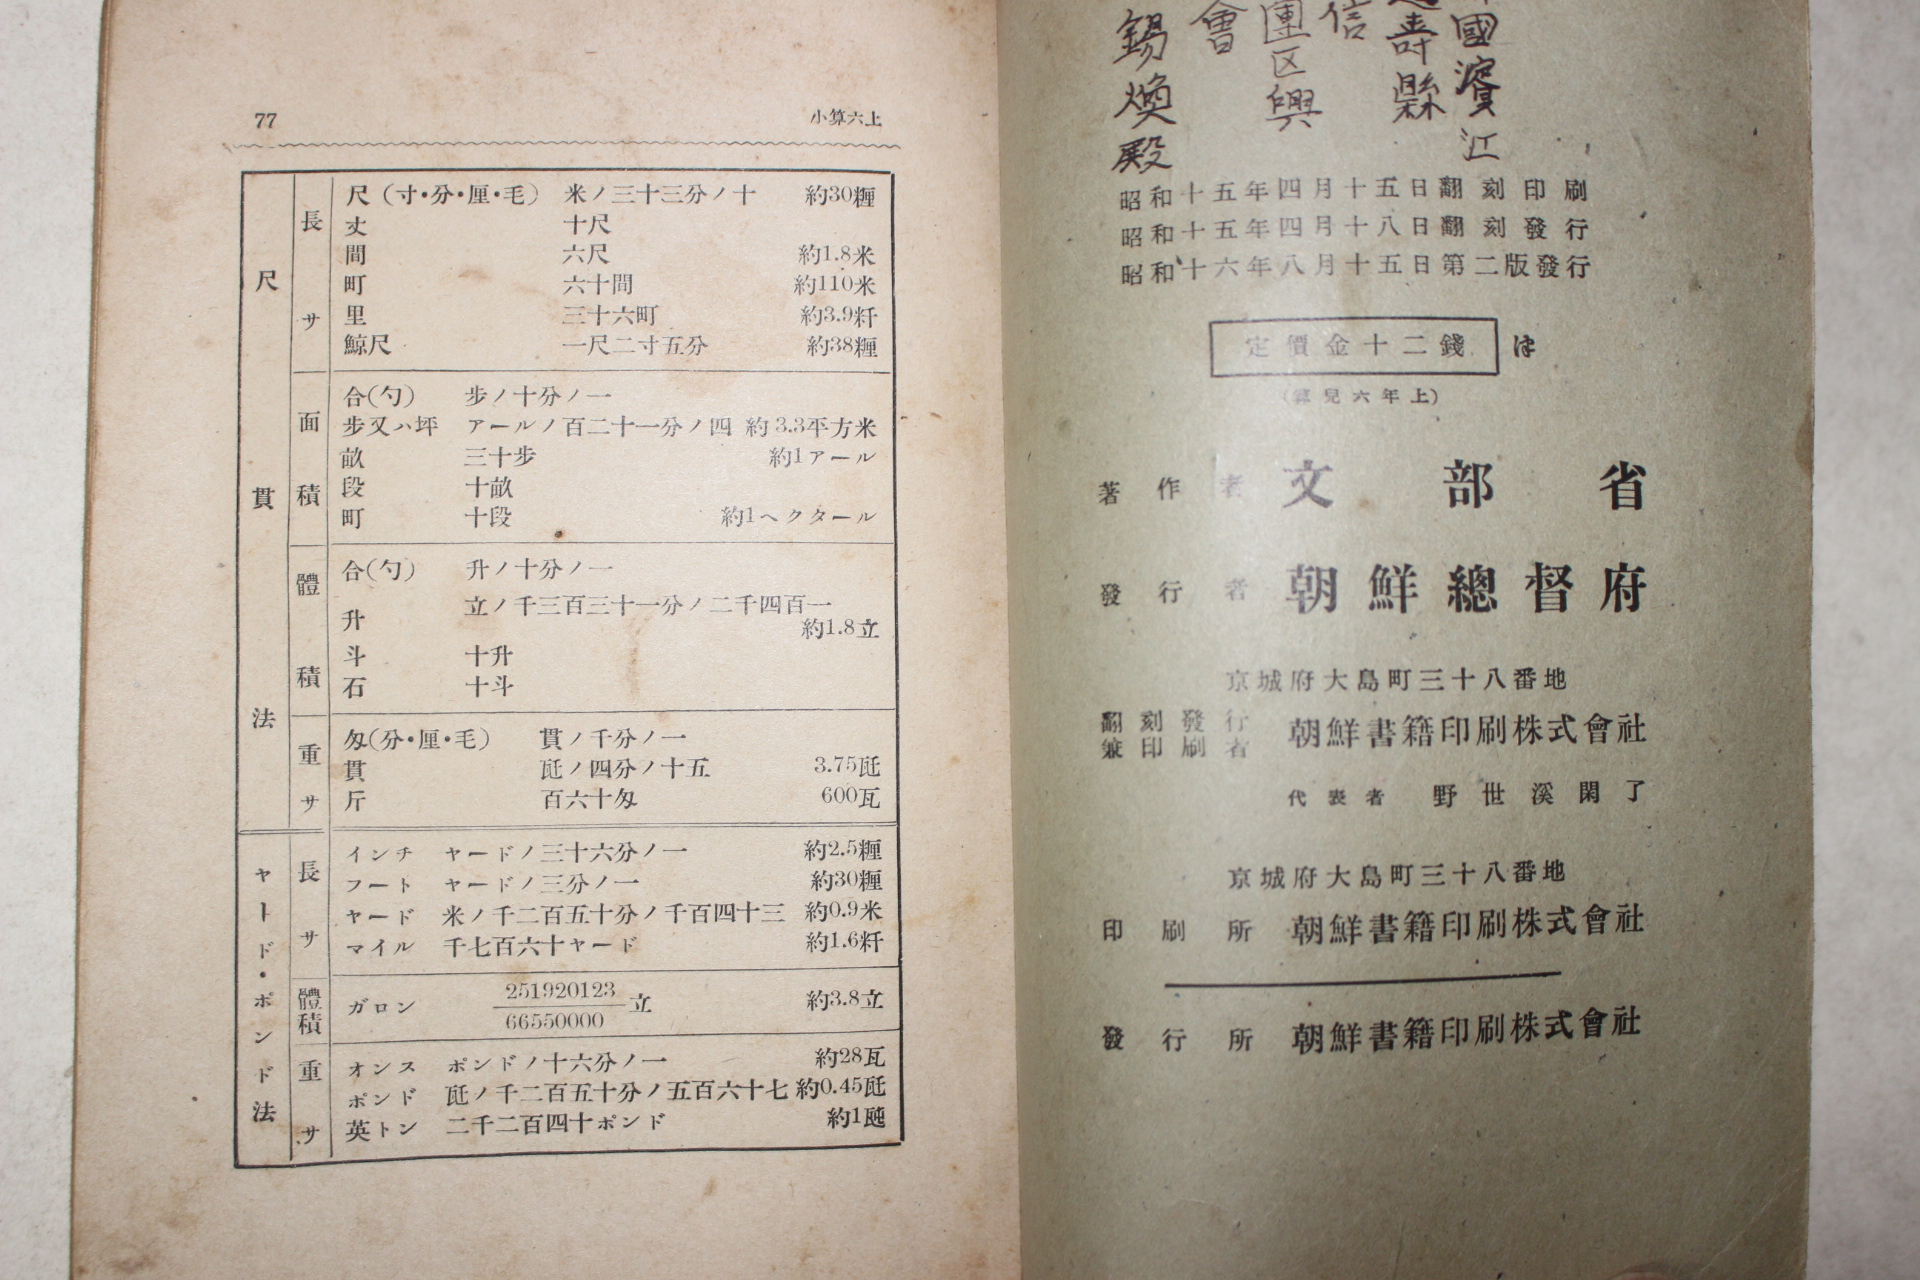 77 小算六上
尺貫法
長サ
尺(寸・分・厘・毛) 米ノ三十三分ノ十 約30糎
丈 十尺
間 六尺 約1.8米
町 六十間 約110米
里 三十六町 約3.9粁
鯨尺 一尺二寸五分 約38糎
面積
合(勺) 步ノ十分ノ一
步又ハ坪 アールノ百二十一分ノ四 約3.3平方米
畝 三十步 約1アール
段 十畝
町 十段 約1ヘクタール
體積
合(勺) 升ノ十分ノ一
升 立ノ千三百三十一分ノ二千四百一
約1.8立
斗 十升
石 十斗
重サ
匁(分・厘・毛) 貫ノ千分ノ一
貫 瓩ノ四分ノ十五 3.75瓩
斤 百六十匁 600瓦
ヤード・ポンド法
長サ
インチ ヤードノ三十六分ノ一 約2.5糎
フート ヤードノ三分ノ一 約30糎
ヤード 米ノ千二百五十分ノ千百四十三 約0.9米
マイル 千七百六十ヤード 約1.6粁
體積
ガロン 251920123/66550000立 約3.8立
重サ
オンス ポンドノ十六分ノ一 約28瓦
ポンド 瓩ノ千二百五十分ノ五百六十七 約0.45瓩
英トン 二千二百四十ポンド 約1瓲
國濱江
壽縣
信
團区興
會
錫煥殿
昭和十五年四月十五日翻刻印刷
昭和十五年四月十八日翻刻發行
昭和十六年八月十五日第二版發行
定價金十二錢 は
(算兒六年上)
著作者 文部省
發行者 朝鮮總督府
京城府大島町三十八番地
翻刻發行兼印刷者 朝鮮書籍印刷株式會社
代表者 野世溪閑了
京城府大島町三十八番地
印刷所 朝鮮書籍印刷株式會社
發行所 朝鮮書籍印刷株式會社